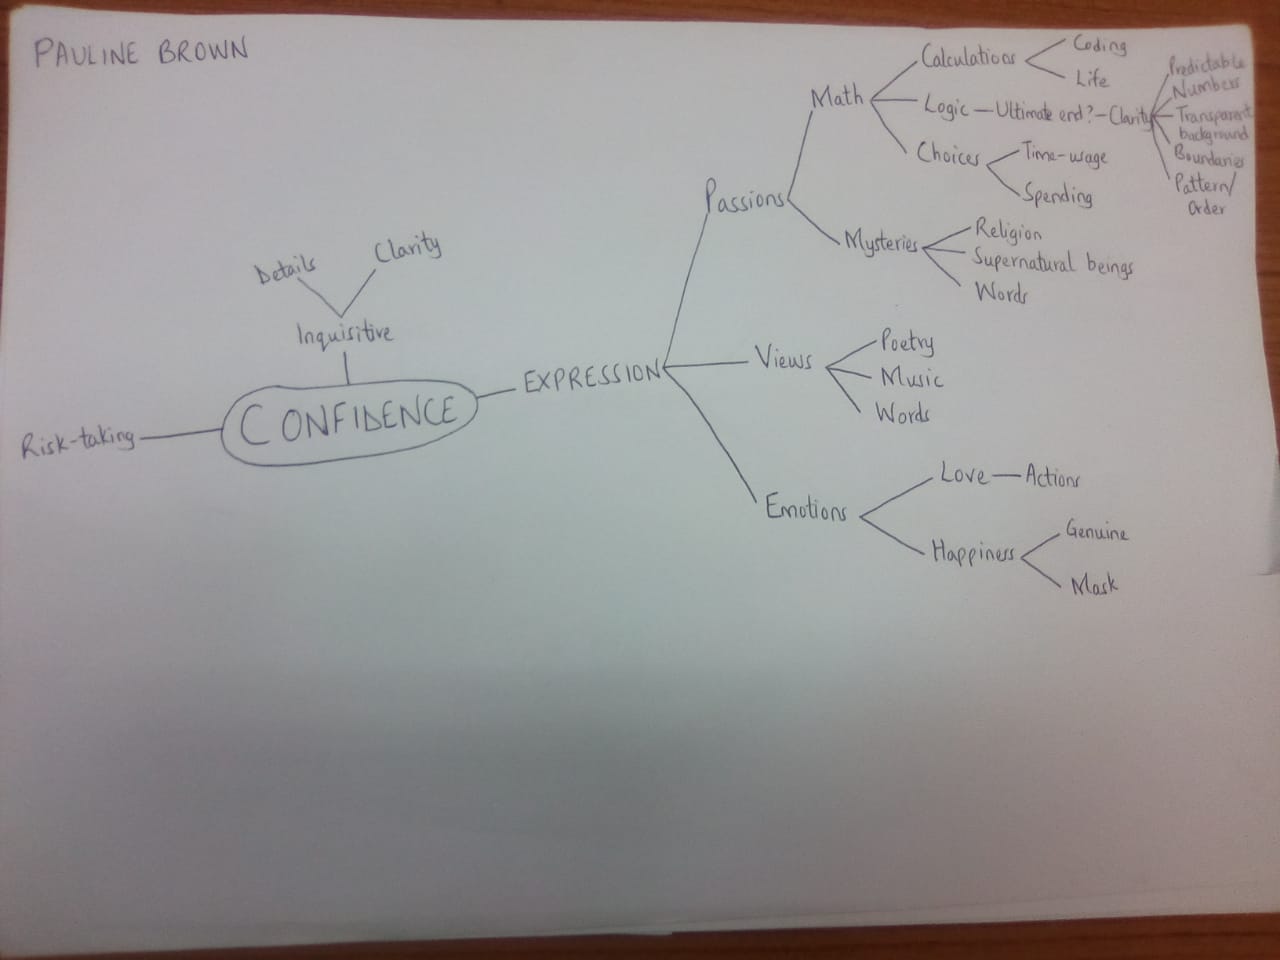 PAULINE BROWN
Risk-taking
CONFIDENCE
Inquisitive
Details
Clarity
EXPRESSION
Passions
Math
Calculations
Coding
Life
Logic — Ultimate end? — Clarity
Predictable
Numbers
Transparent
background
Boundaries
Pattern/
Order
Choices
Time-wage
Spending
Mysteries
Religion
Supernatural beings
Words
Views
Poetry
Music
Words
Emotions
Love — Actions
Happiness
Genuine
Mask